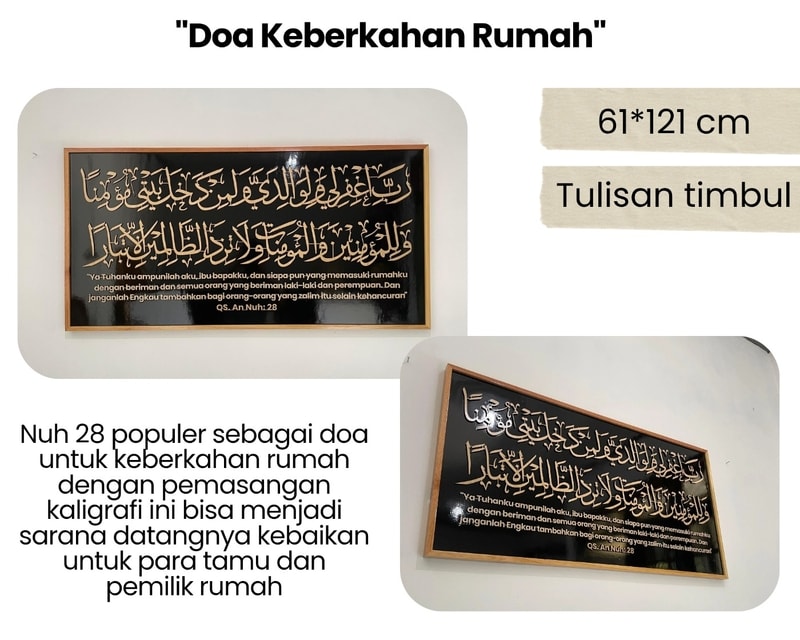 "Doa Keberkahan Rumah"
61*121 cm
Tulisan timbul
رَبِّ اغْفِرْلِي وَلِوَالِدَيَّ وَلِمَنْ دَخَلَ بَيْتِيَ مُؤْمِنًا
وَلِلْمُؤْمِنِيْنَ وَالْمُؤْمِنَاتِ وَلَا تَزِدِ الظَّالِمِيْنَ إِلَّا تَبَارًا
"Ya Tuhanku ampunilah aku, ibu bapakku, dan siapa pun yang memasuki rumahku
dengan beriman dan semua orang yang beriman laki-laki dan perempuan. Dan
janganlah Engkau tambahkan bagi orang-orang yang zalim itu selain kehancuran"
QS. An Nuh: 28
رَبِّ اغْفِرْلِي وَلِوَالِدَيَّ وَلِمَنْ دَخَلَ بَيْتِيَ مُؤْمِنًا
وَلِلْمُؤْمِنِيْنَ وَالْمُؤْمِنَاتِ وَلَا تَزِدِ الظَّالِمِيْنَ إِلَّا تَبَارًا
"Ya Tuhanku ampunilah aku, ibu bapakku, dan siapa pun yang memasuki rumahku
dengan beriman dan semua orang yang beriman laki-laki dan perempuan. Dan
janganlah Engkau tambahkan bagi orang-orang yang zalim itu selain kehancuran"
QS. An Nuh: 28
Nuh 28 populer sebagai doa
untuk keberkahan rumah
dengan pemasangan
kaligrafi ini bisa menjadi
sarana datangnya kebaikan
untuk para tamu dan
pemilik rumah